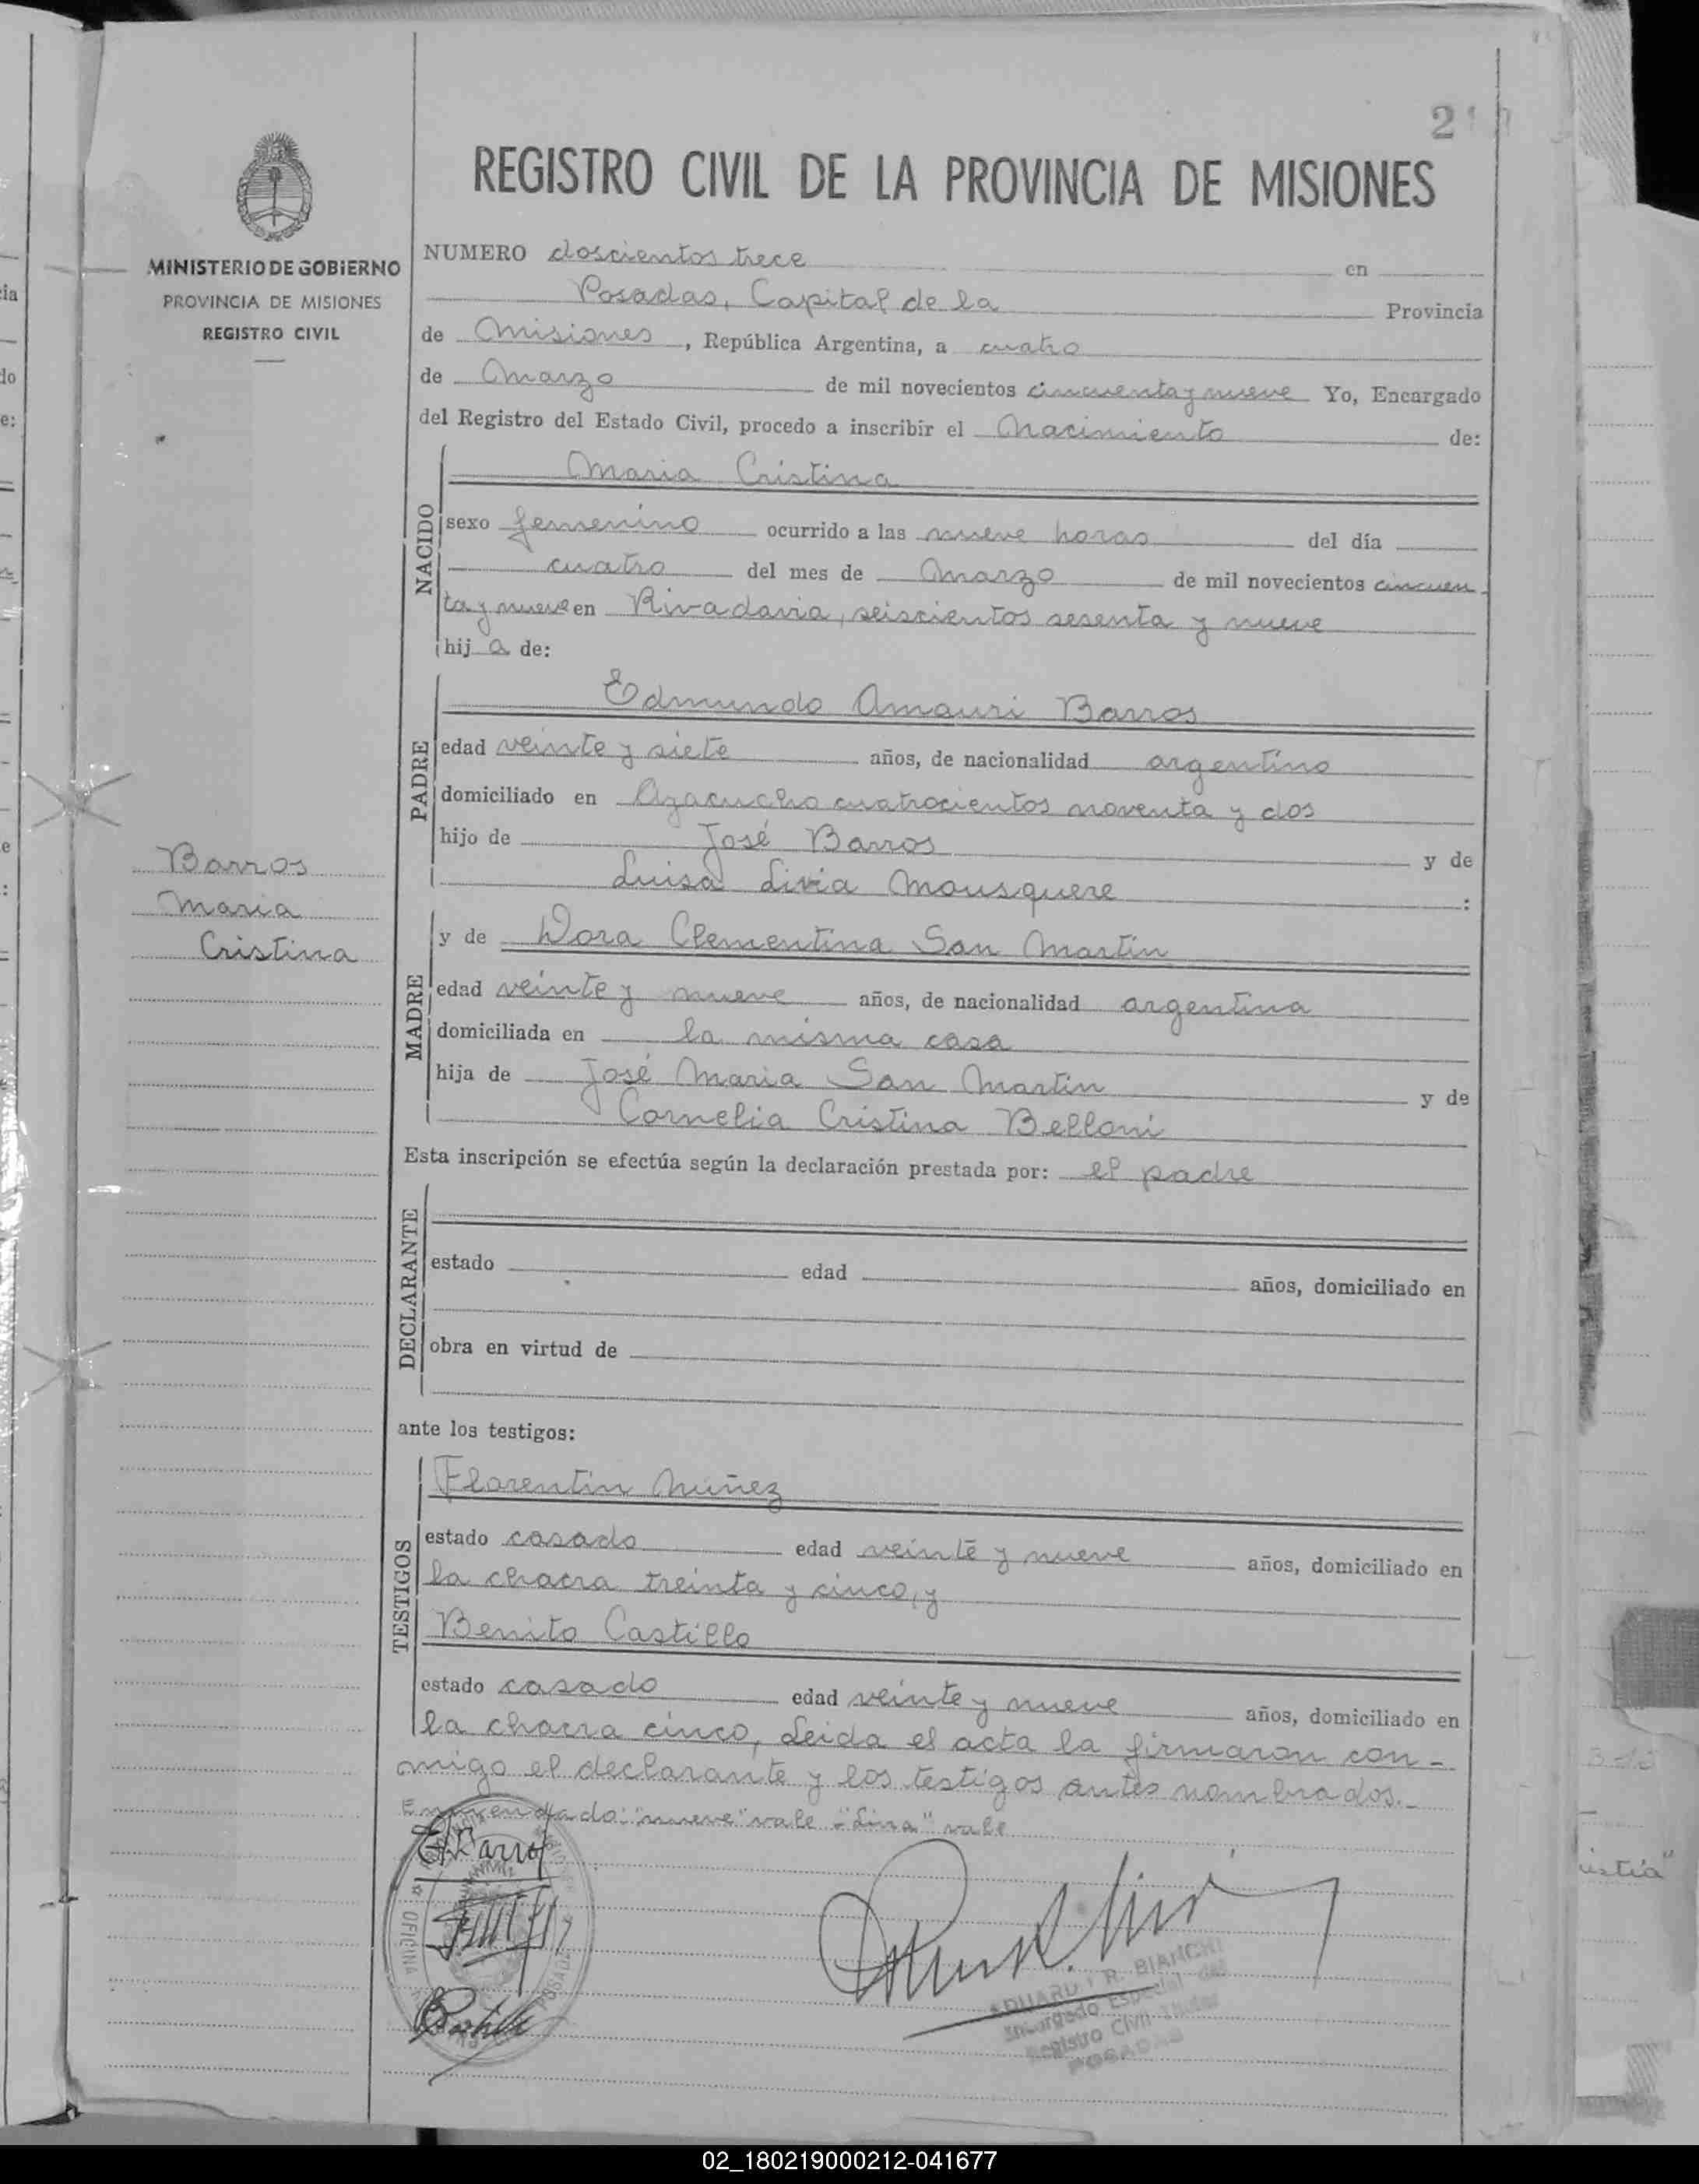 21
REGISTRO CIVIL DE LA PROVINCIA DE MISIONES
MINISTERIO DE GOBIERNO
PROVINCIA DE MISIONES
REGISTRO CIVIL
NUMERO doscientos trece en
Posadas, Capital de la Provincia
de Misiones, República Argentina, a cuatro
de Marzo de mil novecientos cincuenta y nueve Yo, Encargado
del Registro del Estado Civil, procedo a inscribir el Nacimiento de:
NACIDO
Maria Cristina
sexo femenino ocurrido a las nueve horas del día
cuatro del mes de Marzo de mil novecientos cincuen
ta y nueve en Rivadavia, seiscientos sesenta y nueve
hij a de:
PADRE
Edmundo Amauri Barros
edad veinte y siete años, de nacionalidad argentino
domiciliado en Ayacucho cuatrocientos noventa y dos
hijo de José Barros y de
Luisa Livia Mousquere :
Barros
Maria
Cristina
MADRE
y de Dora Clementina San Martin
edad veinte y nueve años, de nacionalidad argentina
domiciliada en la misma casa
hija de José Maria San Martin y de
Cornelia Cristina Belloni
Esta inscripción se efectúa según la declaración prestada por: el padre
DECLARANTE
estado edad años, domiciliado en
obra en virtud de
ante los testigos:
TESTIGOS
Florentin Nuñez
estado casado edad veinte y nueve años, domiciliado en
la chacra treinta y cinco, y
Benito Castillo
estado casado edad veinte y nueve años, domiciliado en
la chacra cinco, Leida el acta la firmaron con-
migo el declarante y los testigos antes nombrados.-
Enmendado: "nueve" vale - vale
E. Barros
OFICINA
R. BIANCHI
Encargado Especial del
Registro Civil Titular
POSADAS
02_180219000212-041677